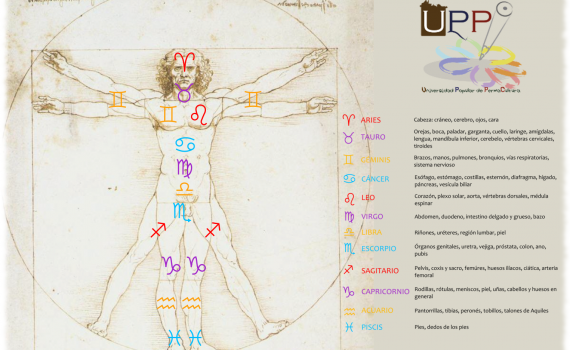 UPP
Universidad Popular de PermaCultura
ARIES
Cabeza: cráneo, cerebro, ojos, cara
TAURO
Orejas, boca, paladar, garganta, cuello, laringe, amígdalas,
lengua, mandíbula inferior, cerebelo, vértebras cervicales,
tiroides
GEMINIS
Brazos, manos, pulmones, bronquios, vías respiratorias,
sistema nervioso
CÁNCER
Esófago, estómago, costillas, esternón, diafragma, hígado,
páncreas, vesícula biliar
LEO
Corazón, plexo solar, aorta, vértebras dorsales, médula
espinar
VIRGO
Abdomen, duodeno, intestino delgado y grueso, bazo
LIBRA
Riñones, uréteres, región lumbar, piel
ESCORPIO
Órganos genitales, uretra, vejiga, próstata, colon, ano,
pubis
SAGITARIO
Pelvis, coxis y sacro, femúres, huesos iliacos, ciática, arteria
femoral
CAPRICORNIO
Rodillas, rótulas, meniscos, piel, uñas, cabellos y huesos en
general
ACUARIO
Pantorrillas, tibias, peronés, tobillos, talones de Aquiles
PISCIS
Pies, dedos de los pies